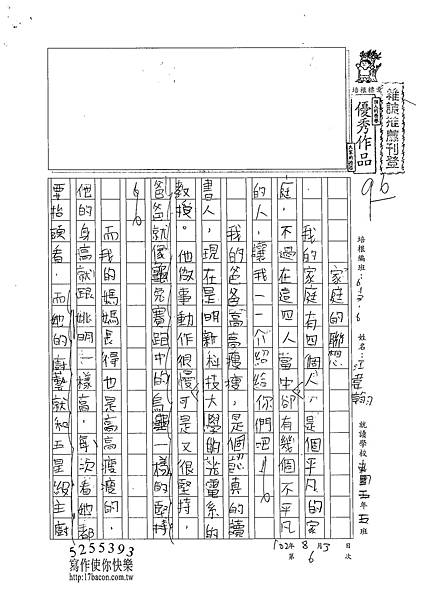 雜誌推薦刊登
培根標竿
優秀作品
96
培根編班：
姓名：江
就讀學校 年五班
家庭的聯想
我的家庭有四個人，是個平凡的家
庭，不過在這四人當中卻有幾個不平凡
的人，讓我一一介紹給你們吧！
我的爸爸高高瘦瘦，是個認真的讀
書人，現在是明新科技大學的光電系的
教授。他做事動作很慢可是又很堅持，
爸爸就像龜兔賽跑中的烏龜一樣的堅持
而我的媽媽長得也是高高瘦瘦的，
他的身高就跟姚明一樣高，每次看他都
要抬頭看，而她的廚藝就和五星級主廚
102年8月3日
第6次
5255393
寫作使你快樂
http://17bacon.com.tw